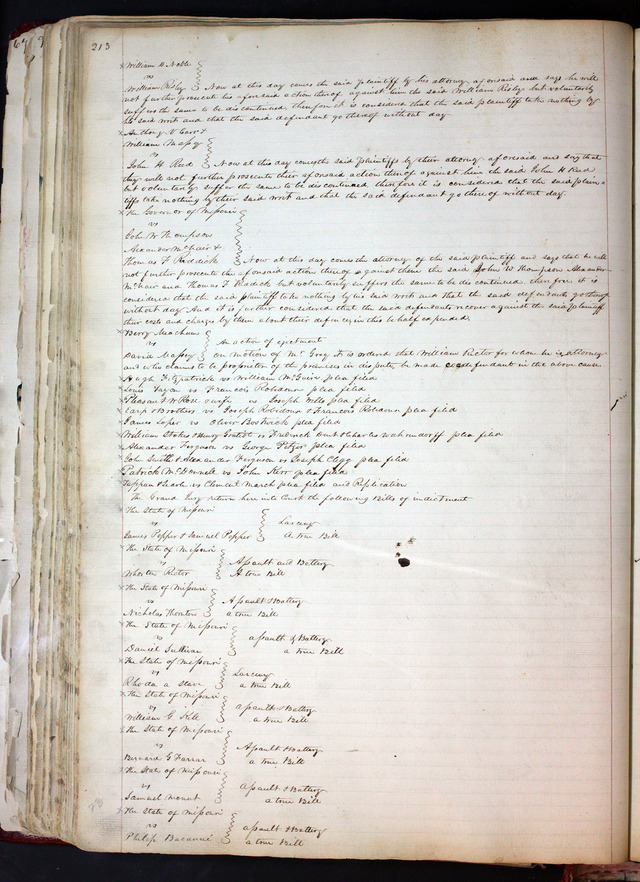 213
William H Noble
vs
William Risly Now at this day comes the said plaintiff by his attorney aforesaid and says he will
not further prosecute his aforesaid action thereof against him the said William Risly but voluntarily
suffers the same to be discontinued, therefore it is considered that the said plaintiff take nothing by
his said writ and that the said defendant go thereof without day
Anthony V
William Massy
vs
John H Reed Now at this day come the said plaintiffs by their attorney aforesaid and say that
they will not further prosecute their aforesaid action thereof against him the said John H Reed
but voluntarily suffer the same to be discontinued therefore it is considered that the said plain
tiffs take nothing by their said writ and that the said defendant go thereof without day.
The Governor of Missouri
vs
John W Thompson
Alexander McNair &
Thomas F Riddick Now at this day comes the attorney of the said plaintiff and says that he will
not further prosecute the aforesaid action thereof against them the said John W Thompson Alexander
McNair and Thomas F Riddick but voluntarily suffers the same to be discontinued therefore it is
considered that the said plaintiff take nothing by his said writ and that the said defendants go thereof
without day And it is further considered that the said defendants recover against the said plaintiff
their costs and charges by them about their defence in this behalf expended.
Berry Meachum
vs An action of ejectment
David Massey on motion of Mr Grey it is ordered that William Rector for whom he is attorney
and who claims to be proprietor of the premises in dispute be made codefendant in the above cause
Hugh Fitzpatrick vs William McGuire plea filed
Louis vs Francois Robidoux plea filed
Pleasant W Rose & wife vs Joseph Wells plea filed
Earp & Brothers vs Joseph Robidoux & Francois Robidoux plea filed
James Loper vs Oliver Bostwick plea filed
William Stokes & Henry vs Frederick & Charles Wahrendorff plea filed
Alexander Ferguson vs George Pitzer plea filed
John Smith & Alexander Ferguson vs Joseph Clegg plea filed
Patrick McDonnell vs John Kerr plea filed
Tappan & Searle vs Clement March plea filed and Replication
The Grand Jury return here into Court the following Bills of indictment
The State of Missouri
vs Larceny
James Pepper & Samuel Pepper A true Bill
The State of Missouri
vs Assault and Battery
Wharton Rector A true Bill
The State of Missouri
vs Assault & Battery
Nicholas Thornton a true Bill
The State of Missouri
vs assault & Battery
Daniel Sullivan a true Bill
The State of Missouri
vs Larceny
Rhoda a slave a true Bill
The State of Missouri
vs assault & Battery
William G a true Bill
The State of Missouri
vs Assault & Battery
Bernard G Farrar a true Bill
The State of Missouri
vs assault & Battery
Samuel Mount a true Bill
The State of Missouri
vs assault & Battery
Philip a true Bill